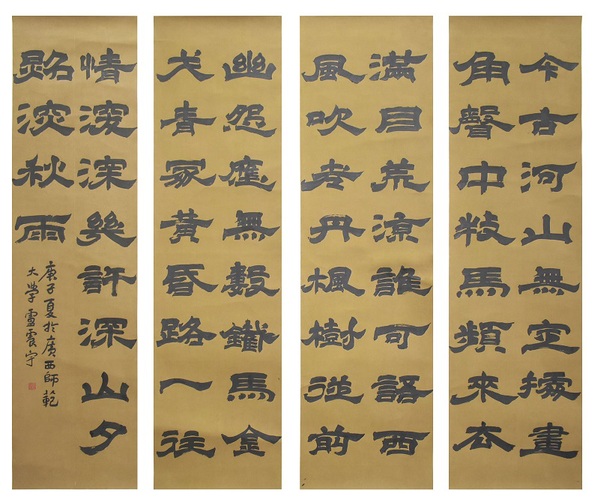 今古河山無定據畫
角聲中牧馬頻來去
滿目荒涼誰可語西
風吹老丹楓樹從前
幽怨應無數鐵馬金
戈青冢黃昏路一往
情深深幾許深山夕
照深秋雨
庚子夏於廣西師範
大学雷震宇